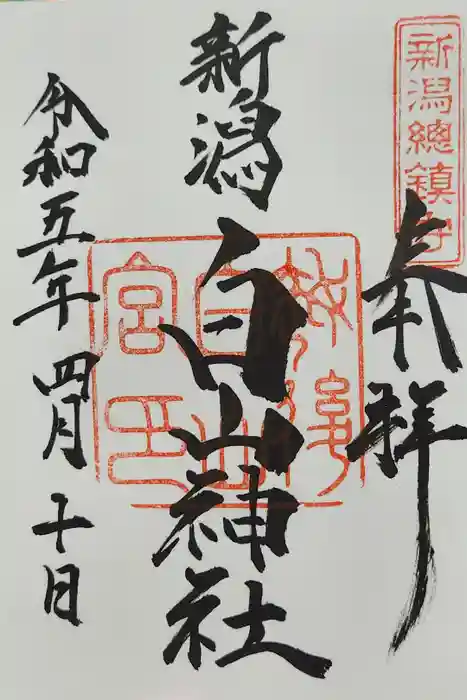 新潟總鎮守
奉拝
新潟白山神社
越後
白山
宮印
令和五年四月十日